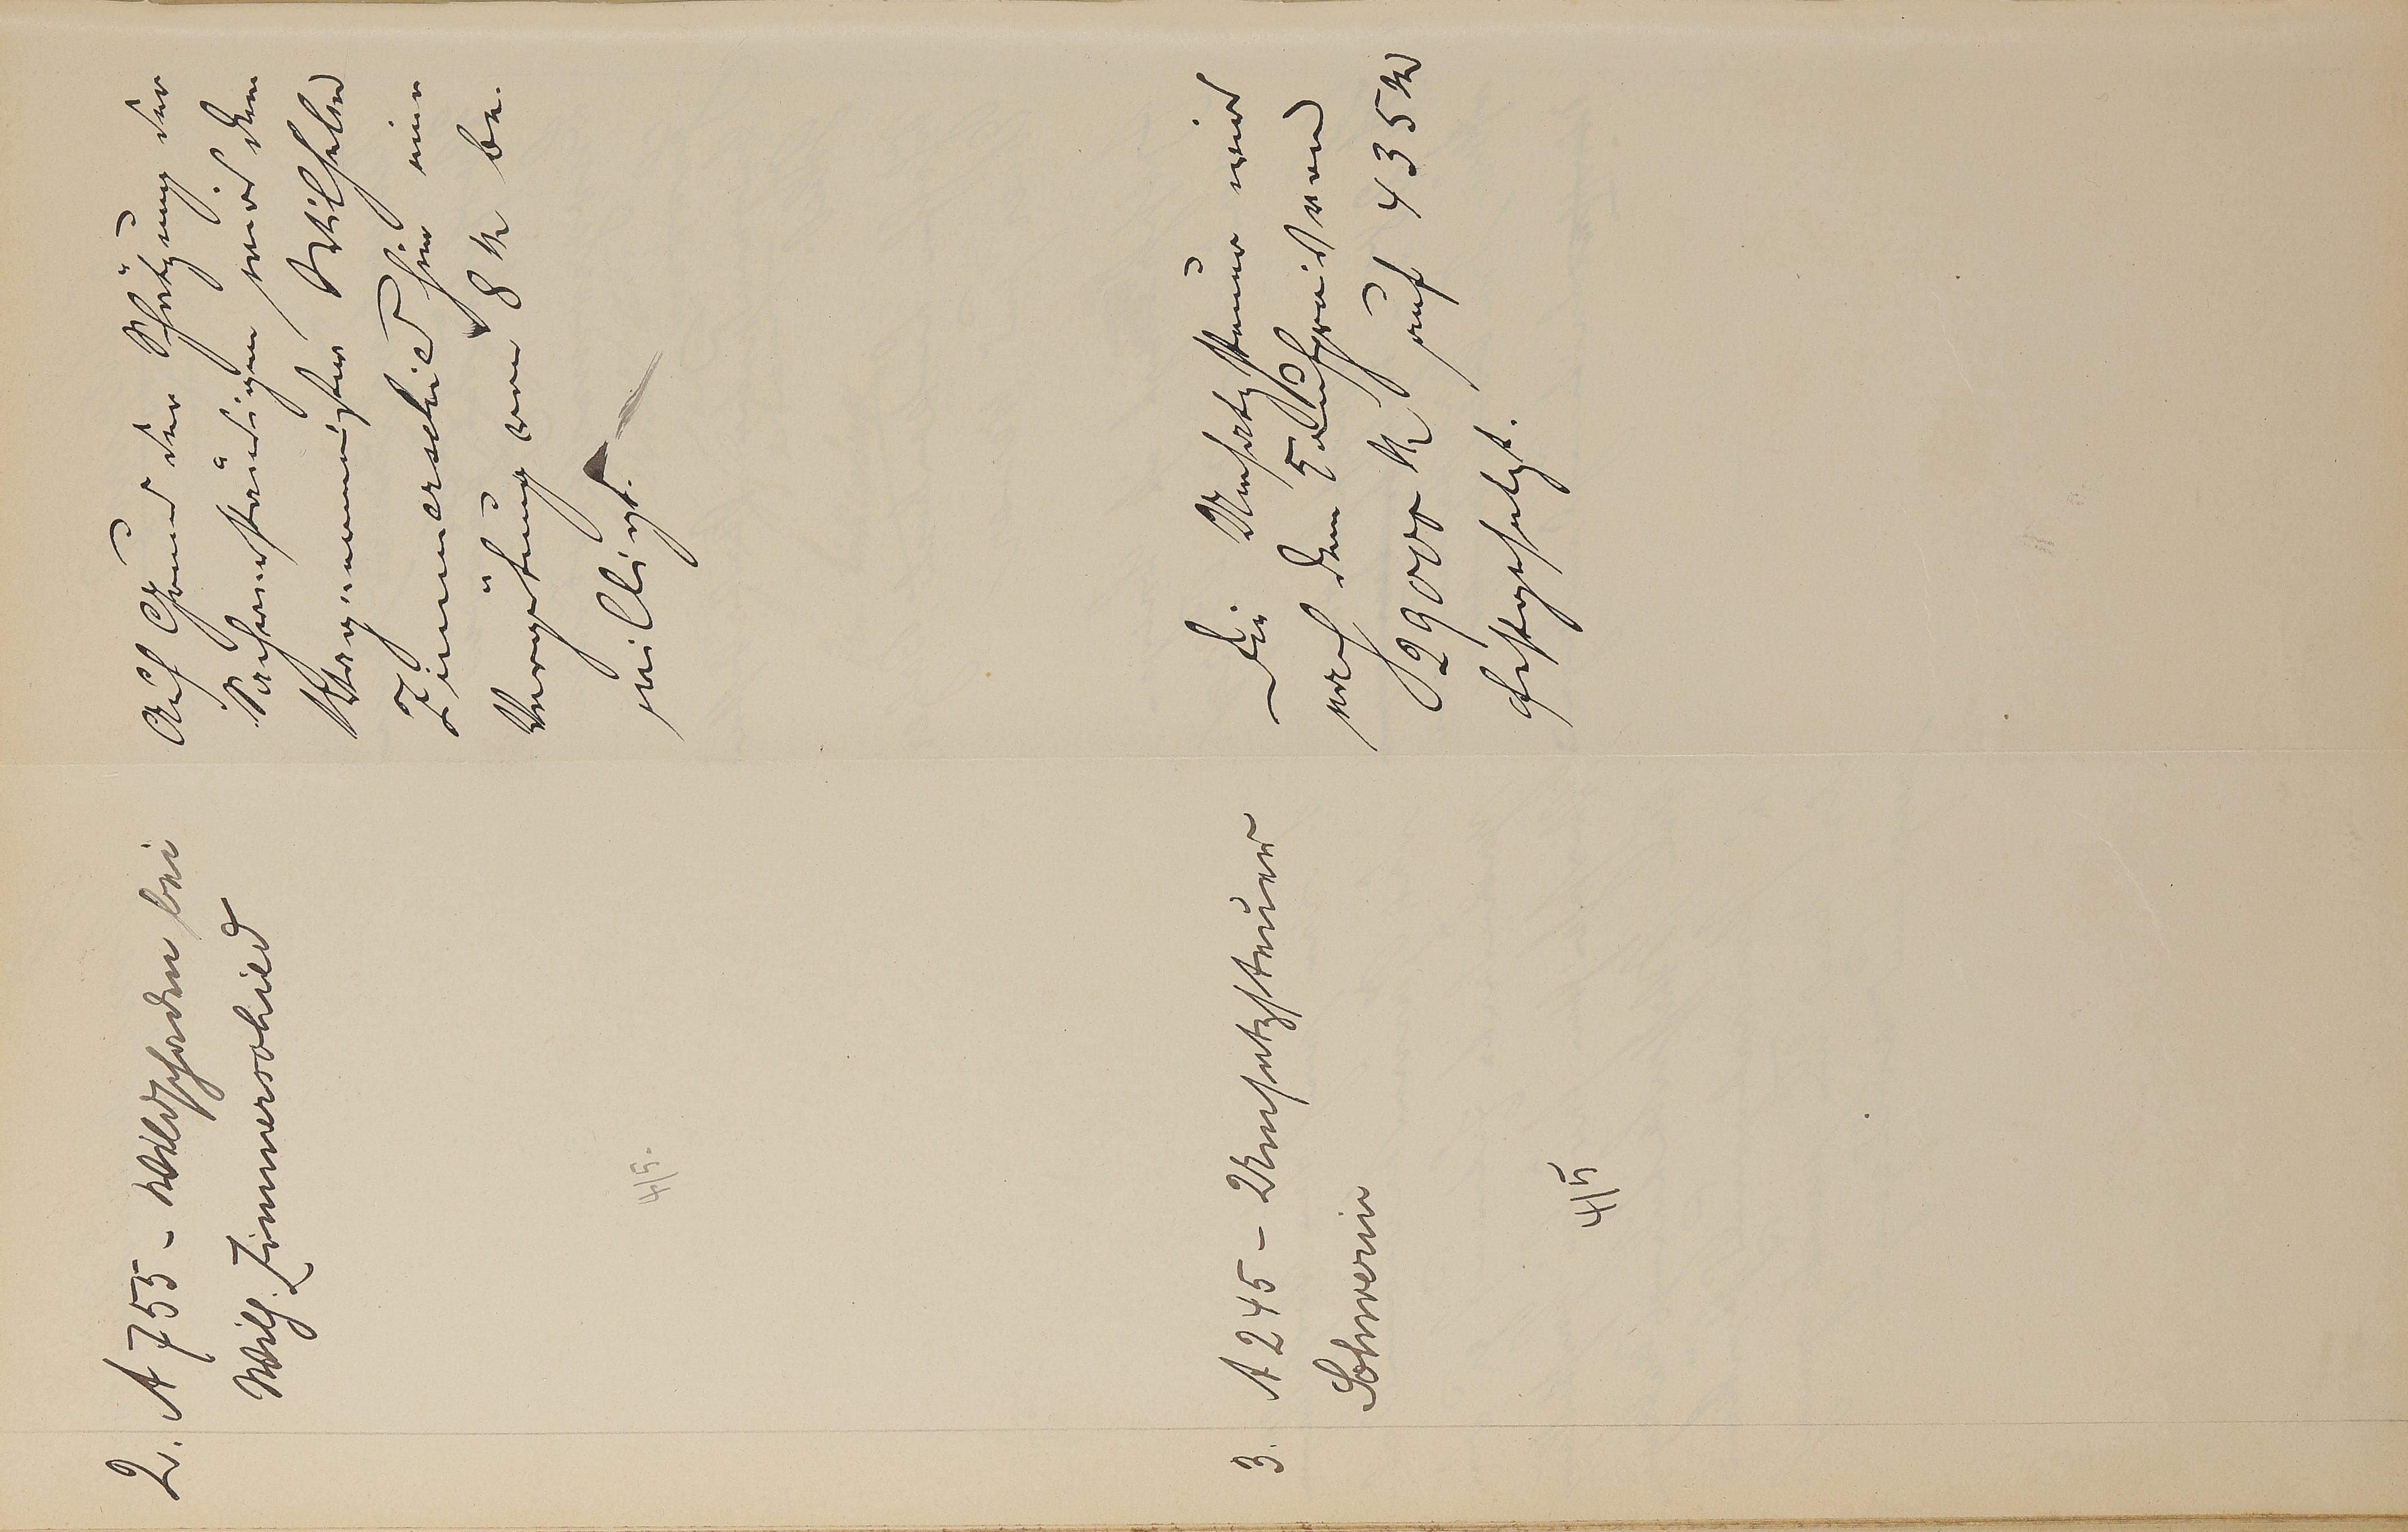 2. A 755 - Wildschaden bei
Wilh. Zimmerschied
4/5.
Auf Grund der Schätzung der
Sachverständigen wird dem
Bergmann Wilhelm
Zimmerschied hier eine
Vergütung von 8 M be-
willigt.
3. A 245 - Umsatzsteuer
Schwerin
4/5
Die Umsatzsteuer wird
nach dem Kaufpreis von
29000 M auf 435 M
festgesetzt.